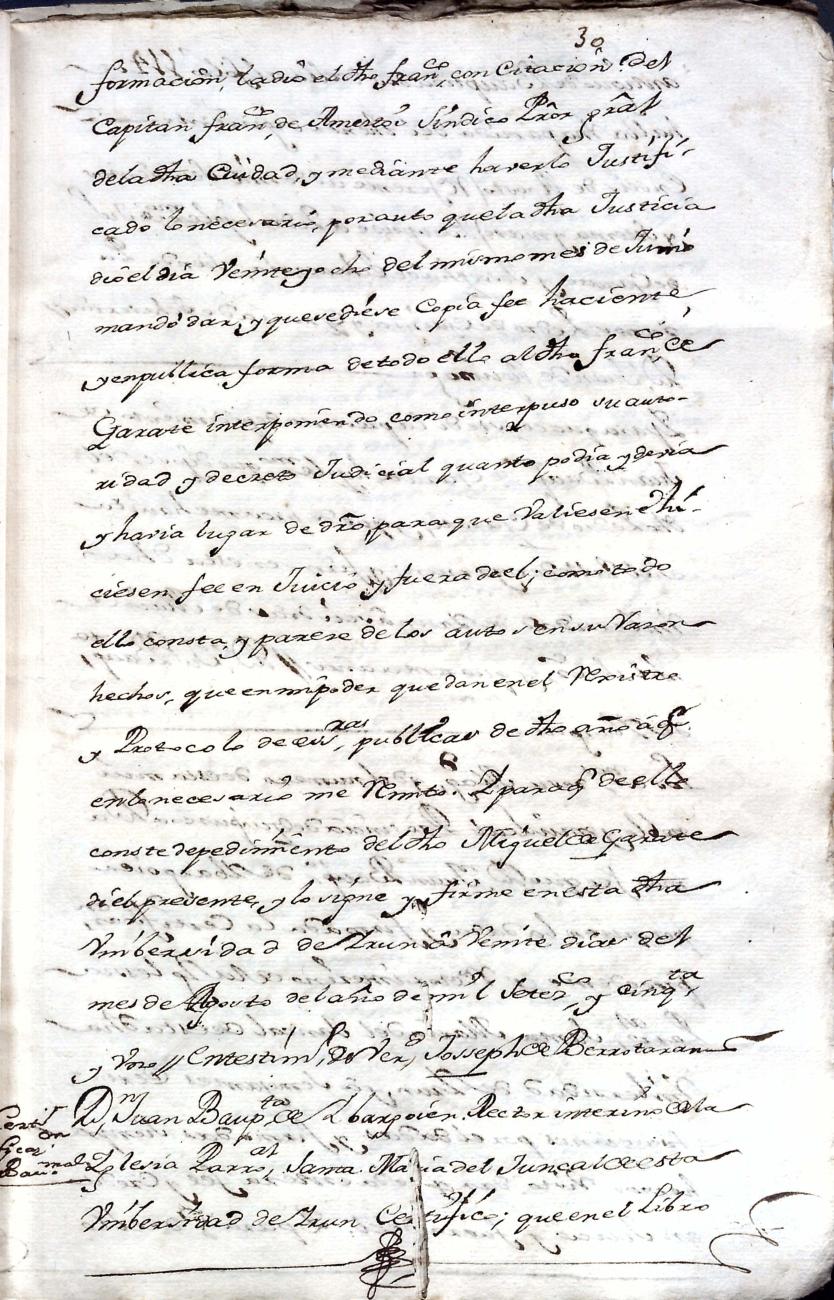 30
formacion, la dió el dho fran.co, con Citacion del
Capitan fran.co, de Amestoi Sindico Prõr grãl
dela dha Ciudad, y mediante haverlo Justifi-
cado lo necesario, por auto que la dha Justicia
dió el dia Veinte y ocho del mismo mes de Junio
mandó dar, y que se diése Copia fee haciente,
y en publica forma de todo ello al dho fran.co, de
Garate interponiendo como interpuso su auto-
ridad y decreto Judicial quanto podia y devia
y havia lugar de dró, para que Valiesen e hi-
ciesen fee en Juicio, y fuera de el; como todo
ello consta, y parece de los autos en su Razon
hechos, que en mi poder quedan en el Rexistro
y Protocolo de essras, publicas de dho año á q.e
en lo necesario me Remito. Y para q.e de ello
conste de pedim.to del dho Miguel de Garate
di el presente, y lo signe y firme en esta dha
Vniversidad de Yrun á Veinte dias del
mes de Agosto del año de mil Setez.os, y cinq.ta
y Vno // En testim.o, de Ver.d Josseph de Berrotaran
D.n Juan Baup.ta de Ybargoien Rector interino de la
Yglesia Parro.al, Santa Maria del Juncal de esta
Vniversidad de Yrun Certifico; que en el Libro
Certi
ficaz.on
Bau.mal